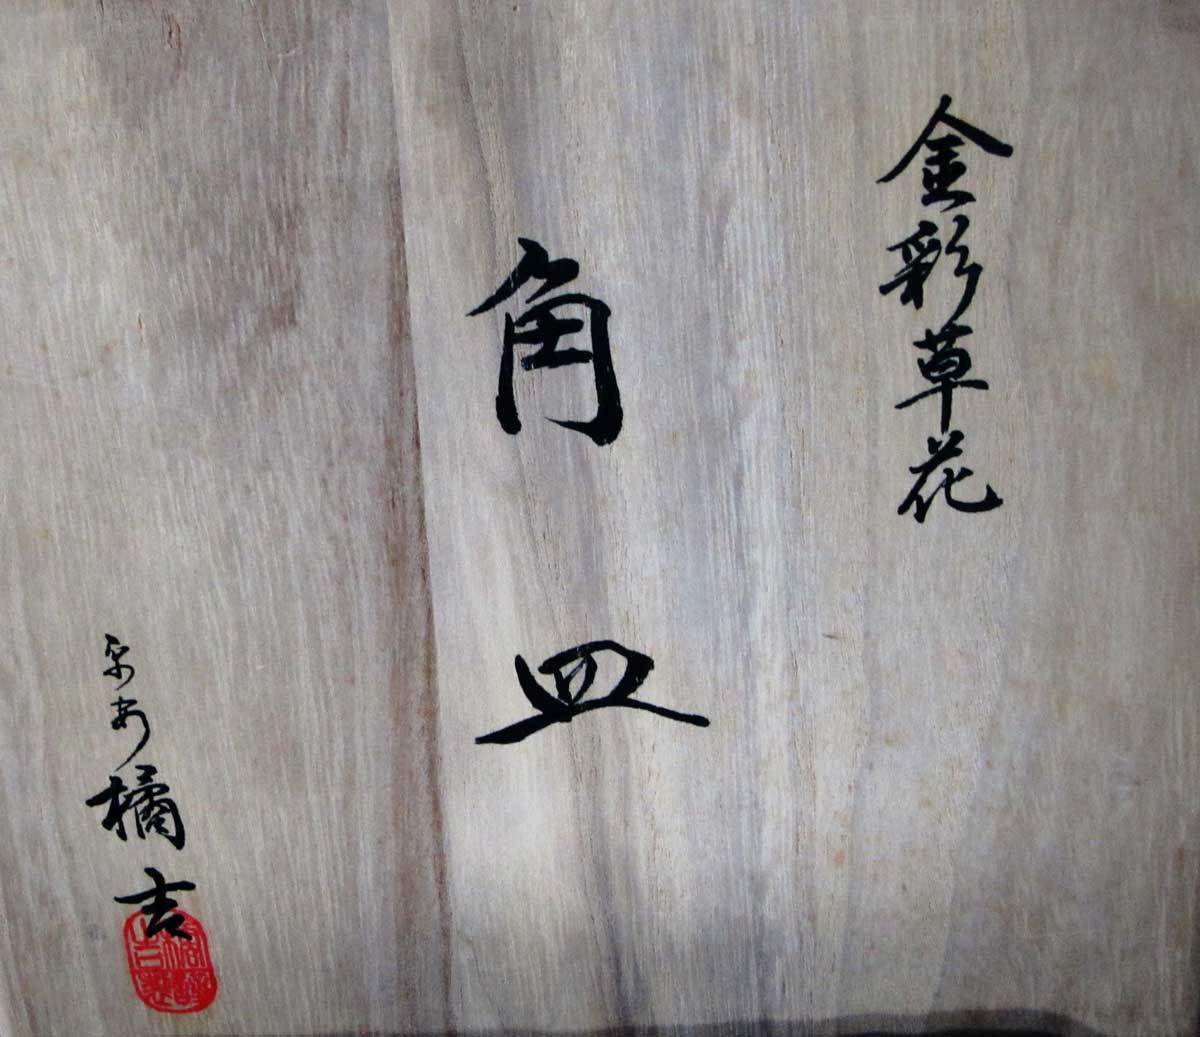 金彩草花
角皿
平安橘吉